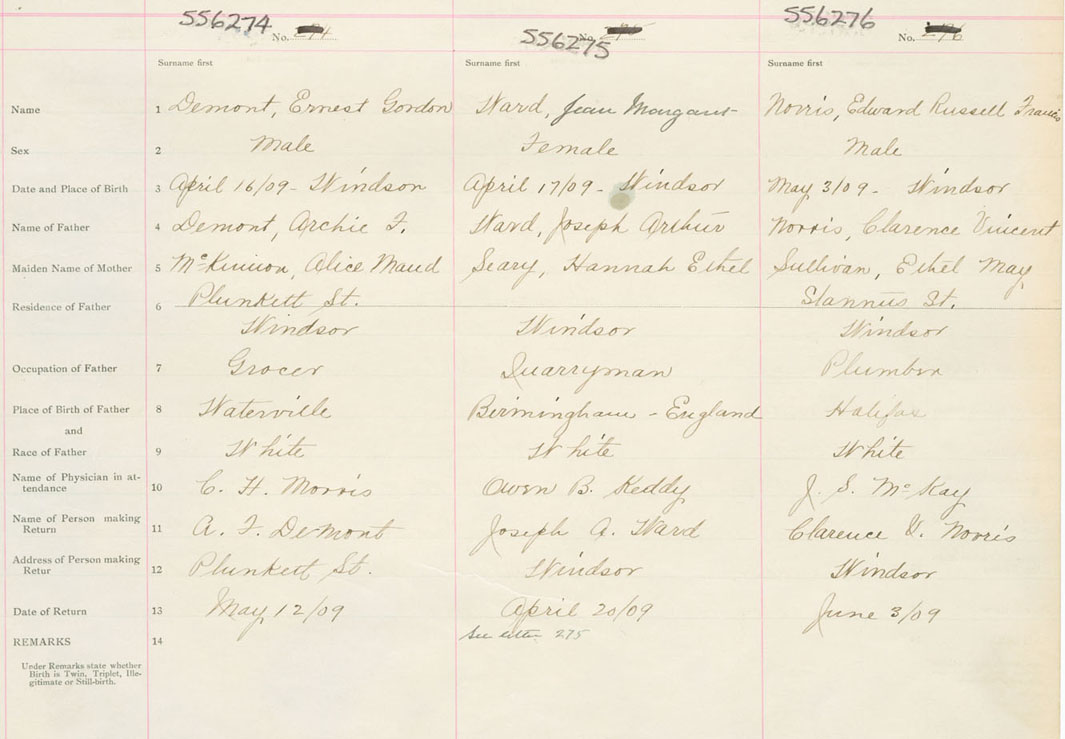 556274 556275 556276
No. 274 No. 275 No. 276
Surname first Surname first Surname first
Name 1 Demont, Ernest Gordon Ward, Jean Margaret Norris, Edward Russell Francis
Sex 2 Male Female Male
Date and Place of Birth 3 April 16/09 - Windsor April 17/09 - Windsor May 3/09 - Windsor
Name of Father 4 Demont, Archie F. Ward, Joseph Arthur Norris, Clarence Vincent
Maiden Name of Mother 5 McKinnon, Alice Maud Seary, Hannah Ethel Sullivan, Ethel May
Residence of Father 6 Plunkett St. Stannus St.
Windsor Windsor Windsor
Occupation of Father 7 Grocer Quarryman Plumber
Place of Birth of Father 8 Waterville Birmingham - England Halifax
and
Race of Father 9 White White White
Name of Physician in at-
tendance 10 C. H. Morris Owen B. Keddy J. S. McKay
Name of Person making
Return 11 A. F. DeMont Joseph A. Ward Clarence V. Norris
Address of Person making
Retur 12 Plunkett St. Windsor Windsor
Date of Return 13 May 12/09 April 20/09 June 3/09
REMARKS 14 See letter 275
Under Remarks state whether
Birth is Twin, Triplet, Ille-
gitimate or Still-birth.